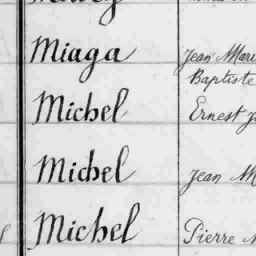 Miaga Jean Mari
Baptiste
Michel Ernest J
Michel Jean M
Michel Pierre